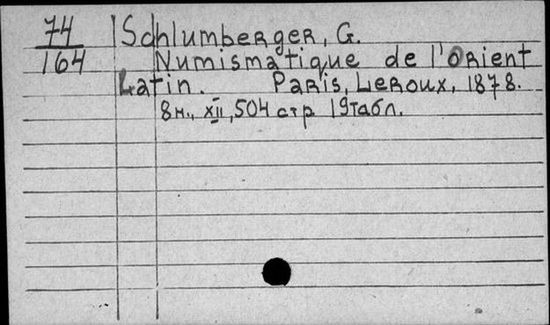 74 Schlumberger, G.
164 Numismatique de l'Orient
Latin. Paris, Leroux, 1878.
8н., XII, 504 стр 19табл.